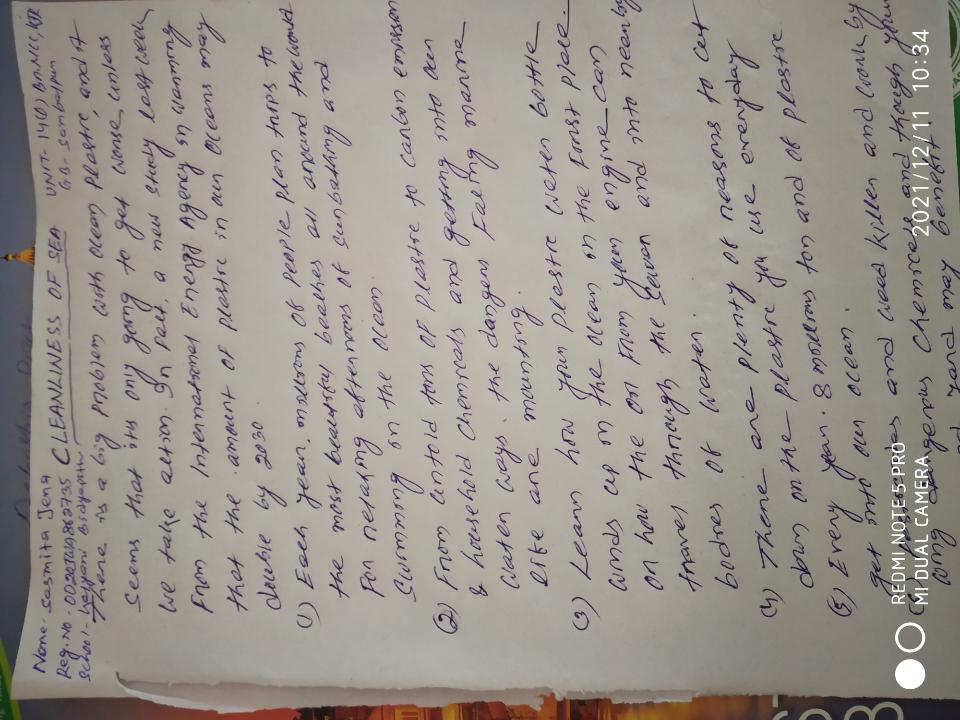 Name- Sasmita Jena
Reg. No-
School-
CLEANLINESS OF SEA
UNIT- 14(O) Bn NCC,
GP- Sambalpur
There is a big problem with ocean plastic, and it
seems that its only going to get worse, unless
we take action. In Fact, a new study last week
From the International Energy Agency is warning
that the amount of plastic in our oceans may
double by 2030
(1) Each year. millions of people plan trips to
the most beautiful beaches all around the world
For relaxing afternoons of sunbathing and
swimming in the ocean
(2) From untold tons of plastic to carbon emission
& household chemicals and getting into our
water ways. the dangers Facing marine
life are mounting.
(3) Learn how your plastic water bottle
winds up in the ocean in the First place
on how the oil From your engine can
travel through the and into nearby
bodies of water.
(4) There are plenty of reasons to cut
down on the plastic you use everyday
(5) Every year. 8 millions ton and of plastic
get into our ocean.
and weed killer and work by
dangerous chemicals and through your
yard may benefit
REDMI NOTE 5 PRO
MI DUAL CAMERA
2021/12/11 10:34